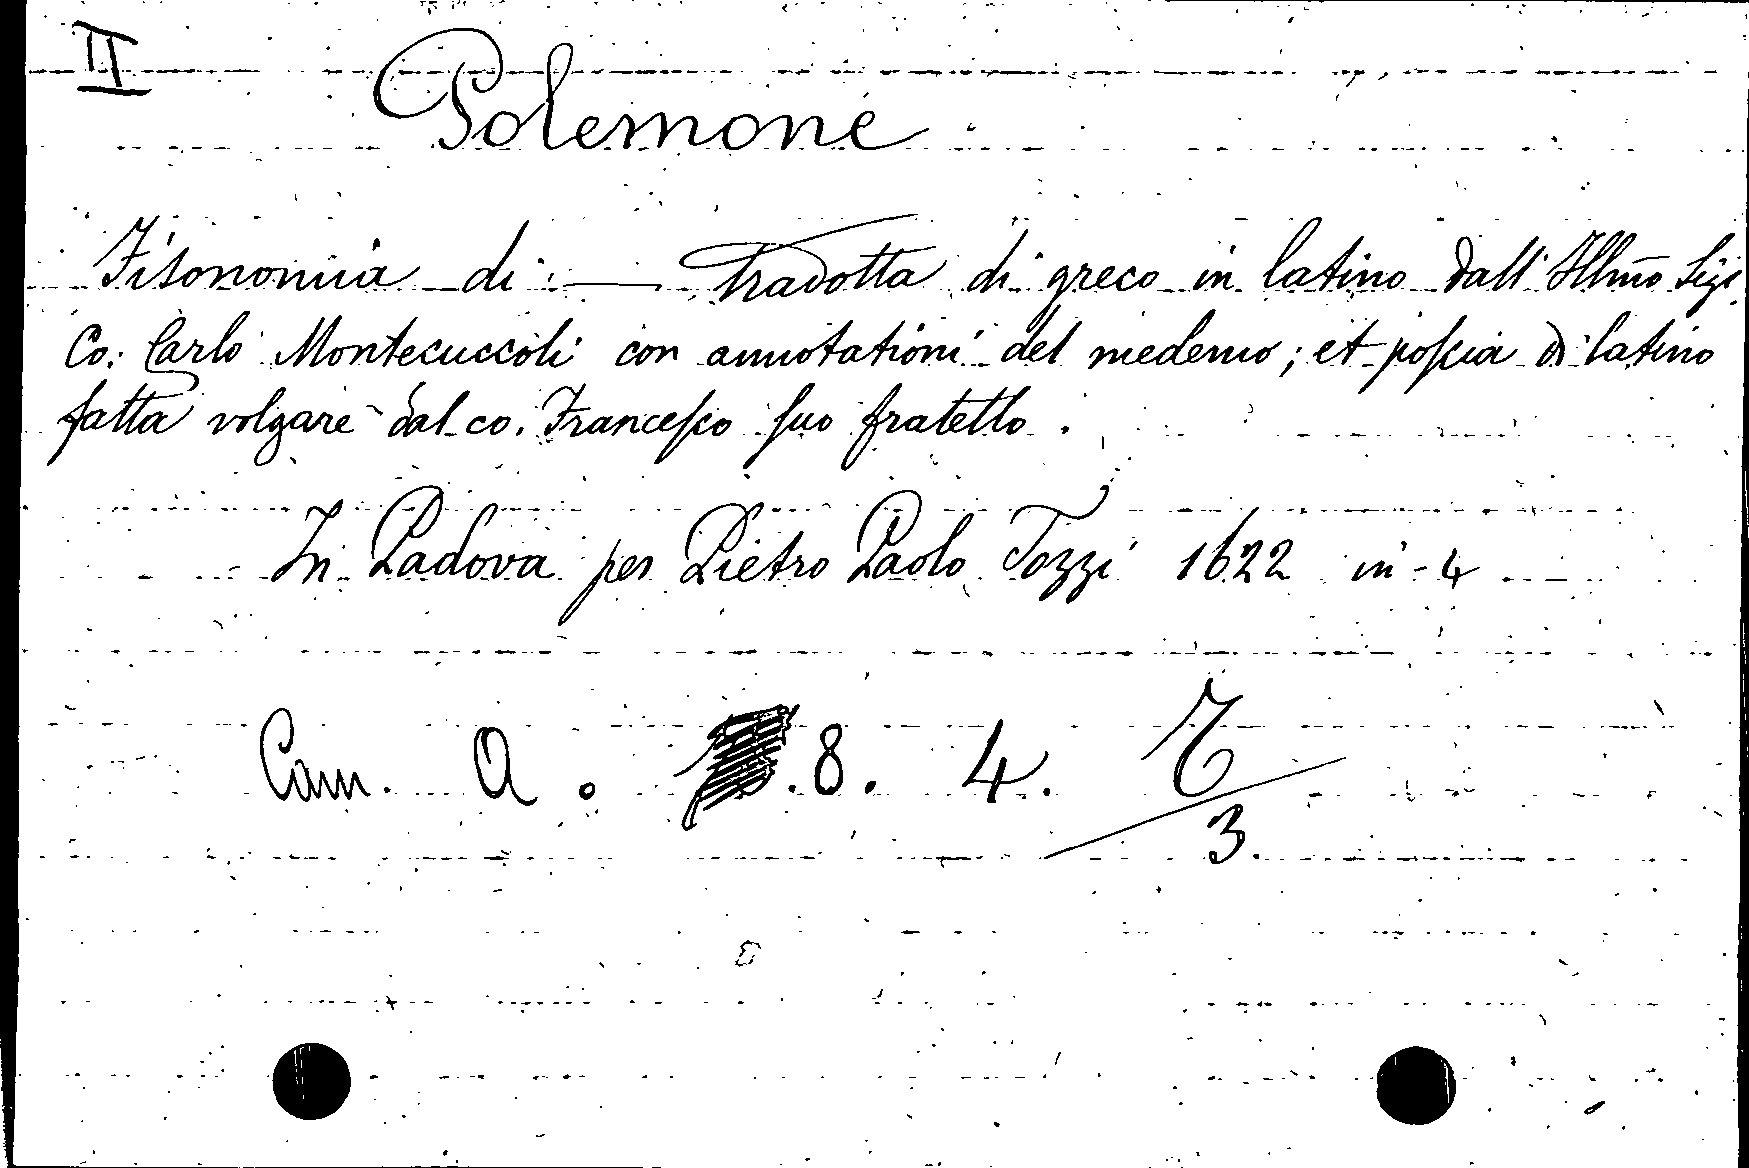 II
Polemone
Fisonomia di — Tradotta di greco in latino dall' Illmo Sigr
Co: Carlo Montecuccoli con annotationi del medemo; et poscia di latino
fatta volgare dal co. Francesco suo fratello.
In Padova per Pietro Paolo Tozzi 1622 in-4
Cam. A. .8. 4.
3.